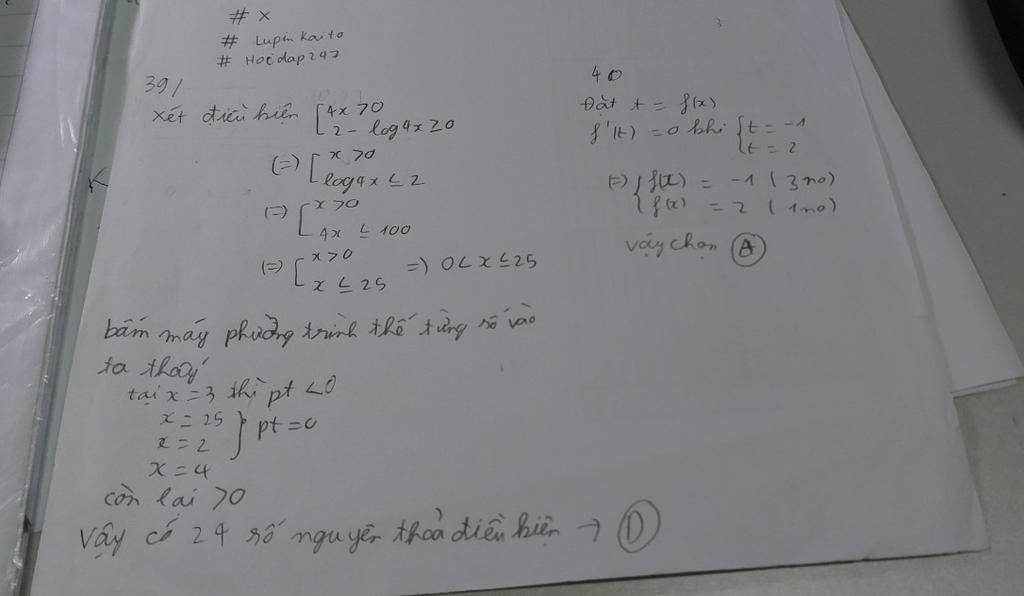 # X
# Lupin Kaito
# Hoidap247
39/
Xét điều kiện [4x > 0
2 - log4x ≥ 0
(=) [x > 0
log4x ≤ 2
(=) [x > 0
4x ≤ 100
(=) [x > 0
x ≤ 25 =) 0 < x ≤ 25
bấm máy phưởng trình thế từng số vào
ta thấy
tại x = 3 thì pt < 0
x = 25
x = 2 } pt = 0
x = 4
còn lại > 0
Vậy có 24 số nguyên thoả điều kiện → D
40
Đặt t = f(x)
f'(t) = 0 khi {t = -1
t = 2
(=) {f(x) = -1 (3 no)
f(x) = 2 (1 no)
Vậy chọn A